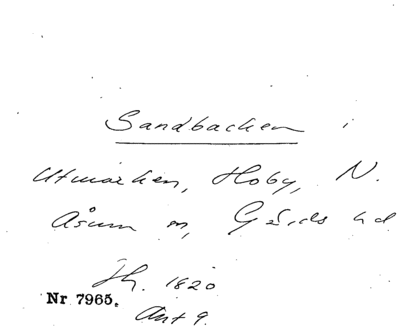 Sandbacken i
Utmarken, Hoby, N.
Åsum sn, Gärds hd
Th. 1820
Nr 7965.
Akt 9.